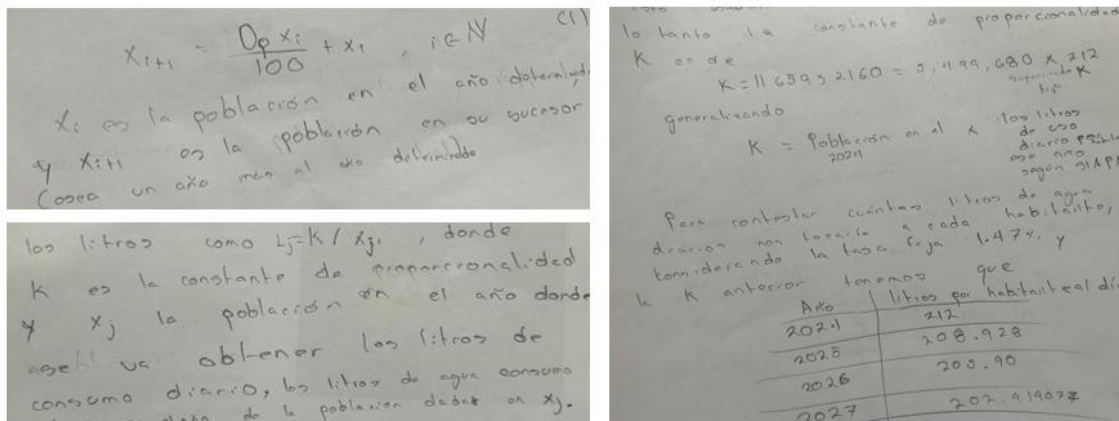 (1)
X_{i+1} = Dp x_i / 100 + x_i , i ∈ N
X_i es la población en el año determinado
y X_{i+1} es la población en su sucesor
(osea un año mas al año determinado
los litros como L_j = K / X_j, donde
K es la constante de proporcionalidad
y X_j la población en el año donde
se va obtener los litros de
consumo diario, los litros de agua consumo
de la población dada en x_j.
lo tanto la constante de proporcionalidad
K es de
K = 1165952160 = 5,499,680 x 212
K
generalizando
K = Población en el x los litros
2024 de uso
diario
ese año
según SIAPA
Para contestar cuántos litros de agua
diarios nos tocaría a cada habitante,
considerando la tasa fija 1.47% y
la K anterior tenemos que
Año litros por habitante al día
2024 212
2025 208.928
2026 205.90
2027 202.919027